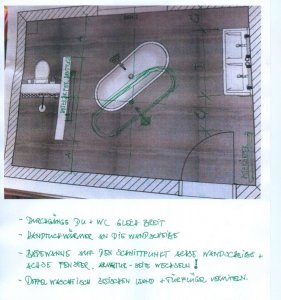 - DURCHGÄNGE DU + WC GLEICH BREIT
- HANDTUCHWÄRMER AN DIE WANDSCHEIBE
- BADEWANNE AUF DEN SCHNITTPUNKT ACHSE WANDSCHEIBE +
ACHSE FENSTER. ARMATUR-SEITE WECHSELN!
- DOPPELWASCHTISCH ZWISCHEN WAND + TÜRFLÜGEL VERMITTELN.